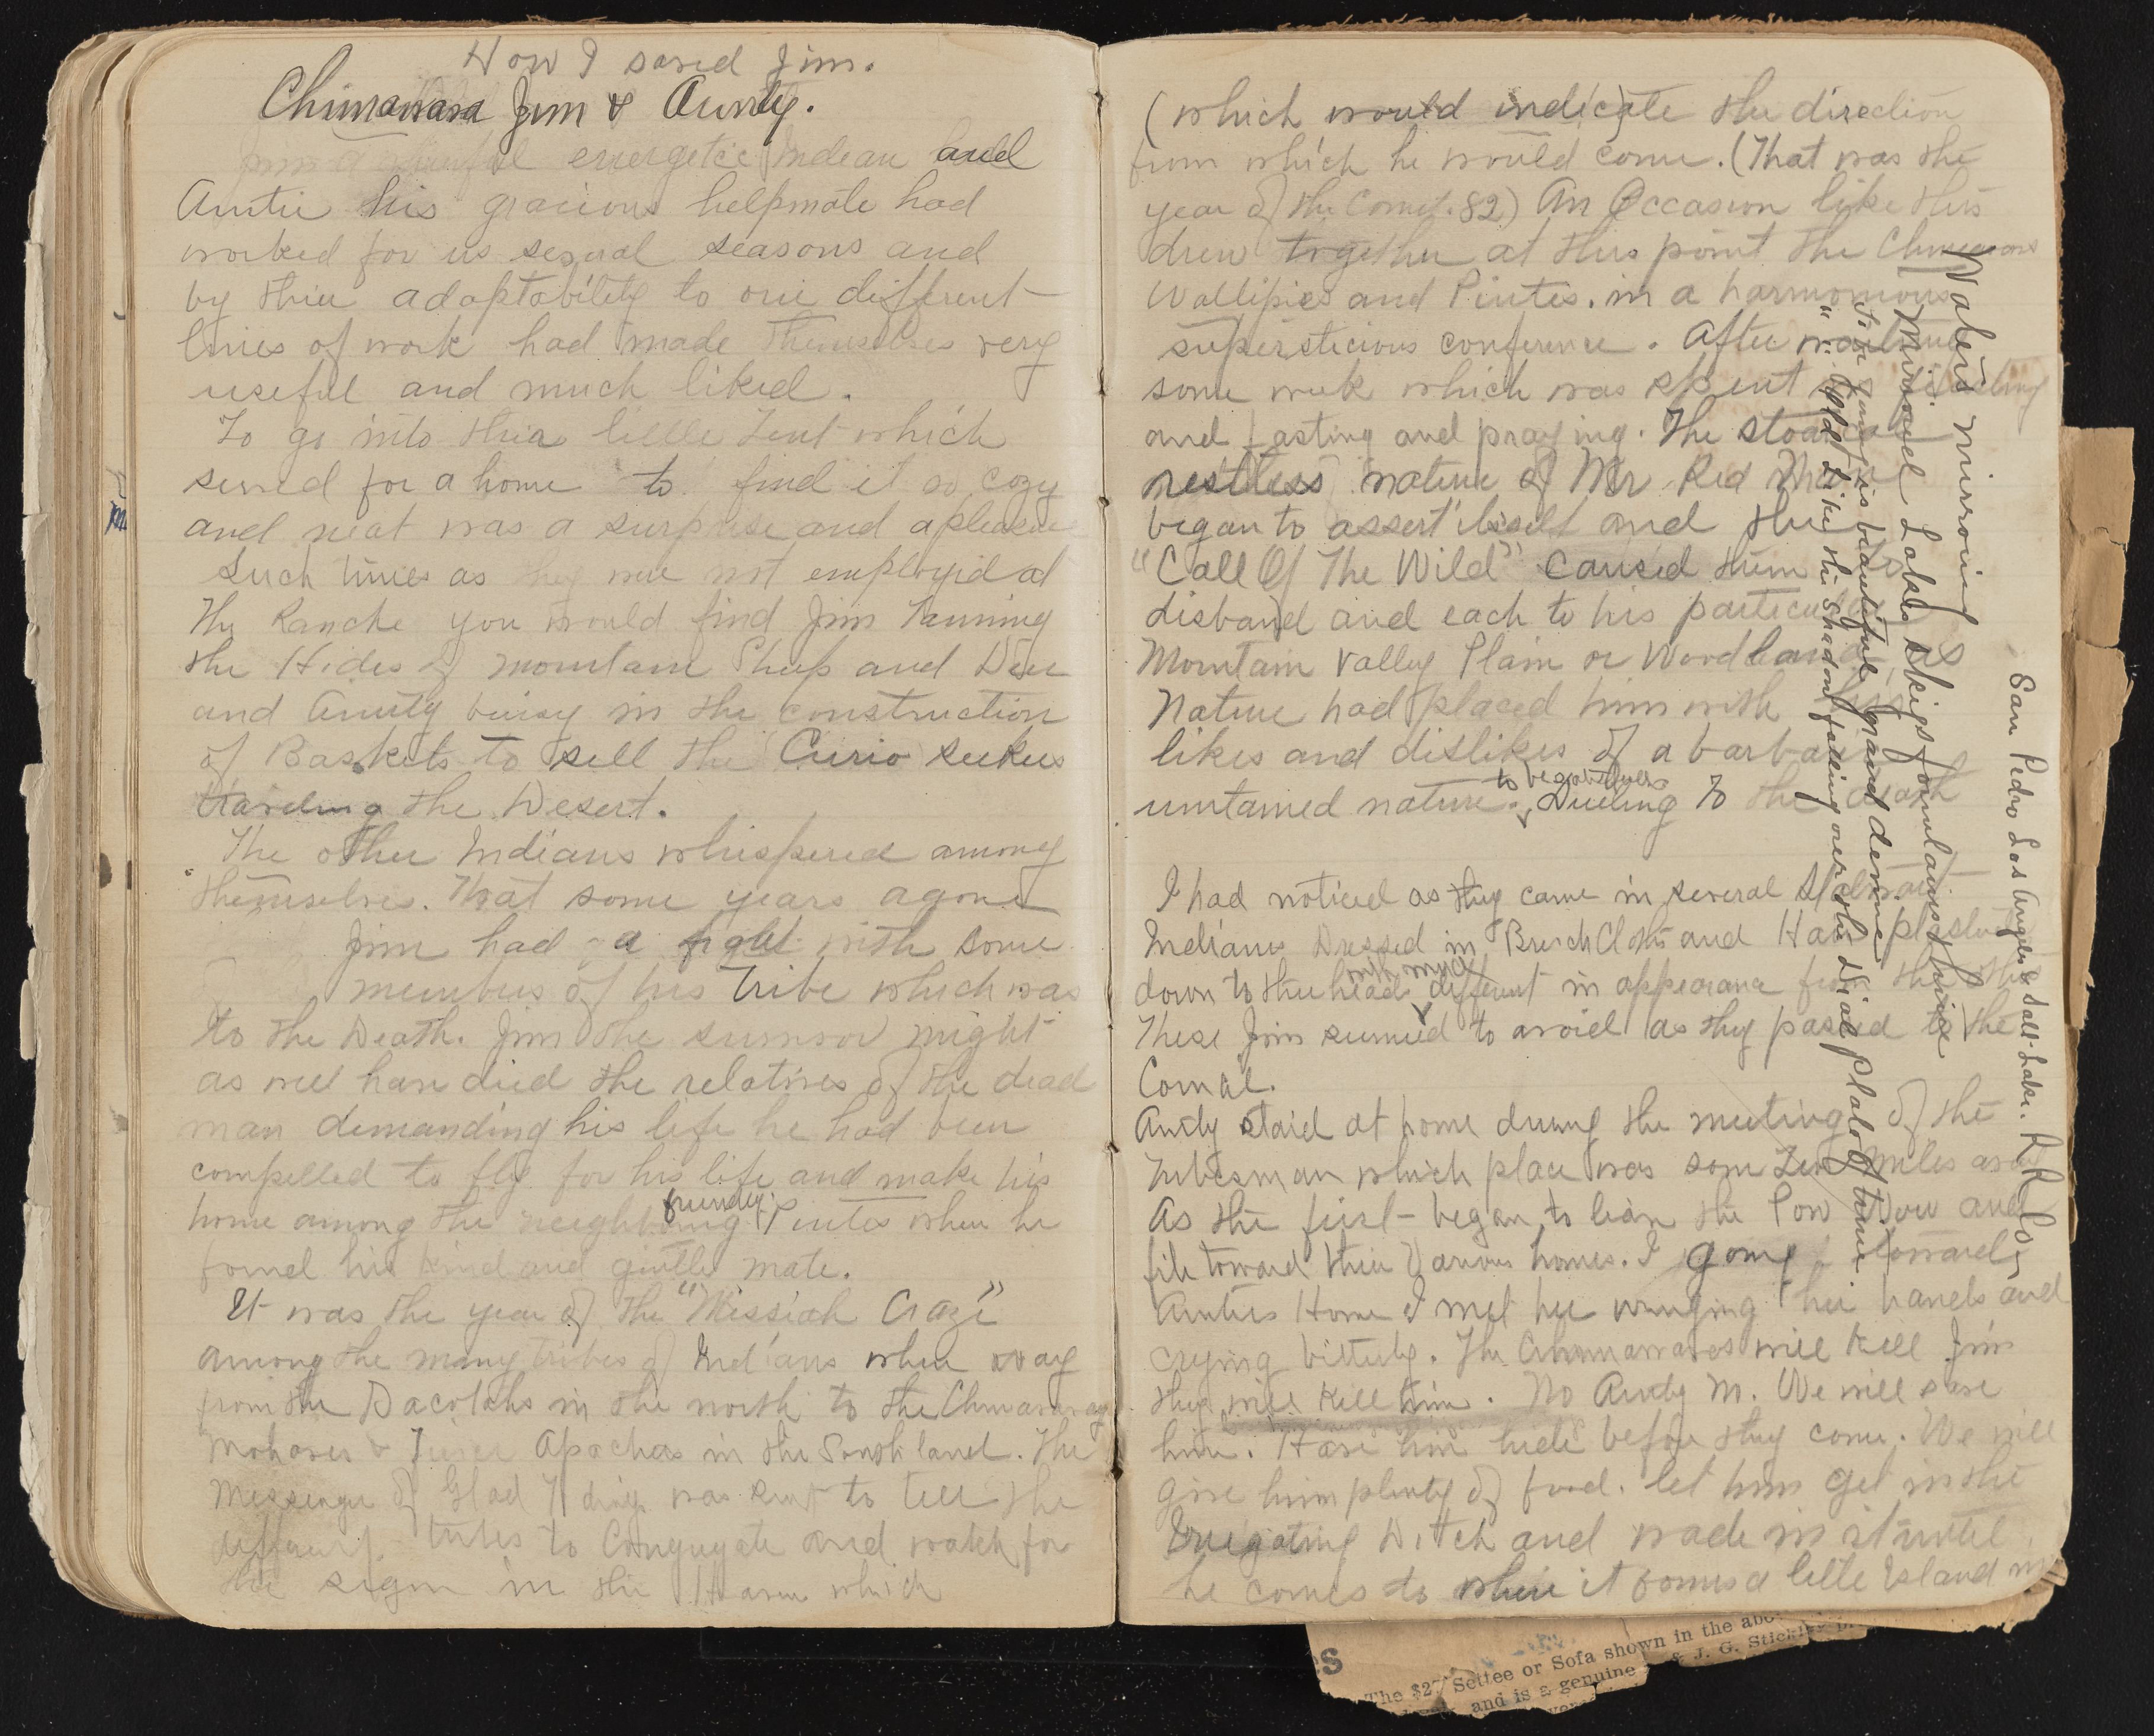 How I saved Jim.
Chimawava Jim & Aunty.
energetic Indian and
Auntie his gracious helpmate had
worked for us several seasons and
by thier adaptability to our different
lines of work had made themselves very
useful and much liked.
To go into thier little Tent which
served for a home to find it so cozy
and neat was a surprise and a pleasure
Such times as they were not employed at
The Ranche you would find Jim Tanning
the Hides of mountain Sheep and Deer
and Aunty buisy in the construction
of Baskets to sell the Curio seekers
traveling the Desert.
The other Indians whispered among
themselves. That some years agone
Jim had a fight with some
members of his Tribe which was
to the Death. Jim the survivor might
as well have died the relatives of the dead
man demanding his life he had been
compelled to fly for his life and make his
friendly
home among the neighboring Piutes when he
found his kind and gentle mate.
It was the year of the "Messiah Craze"
among the many tribes of Indians when away
from the Dacotahs in the north to the Chimawavas
Mohaves & Apaches in the Southland. The
Messenger of Glad Tidings was sent to tell the
different tribes to Congregate and watch for
the sign in the Heaven which
(which would indicate the direction
from which he would come. (That was the
year of the Comet. 82) An Occasion like this
drew together at this point the
Wallipies and Piutes. in a harmonious
supersticious conference. After waiting
some week which was spent
and fasting and praying. The
restless nature of Mr Red Man
began to assert itself and the
"Call Of The Wild" caused them to
disband and each to his particular
Mountain Valley Plain or Woodland as
Nature had placed him with his
likes and dislikes of a barbarous
untamed nature.
to the death
I had noticed as they came in several stalwart
Indians Dressed in Breich Cloths and Hair plastered
with mud
down to thier heads different in appearance from the others
These Jim seemed to avoid as they passed to the
Corral.
Aunty staid at home during the meeting of the
tribesman which place was some Ten miles away
As the first began to leave the Pow Wow and
file toward thier various homes. I going toward
Aunties Home I met her wringing her hands and
crying bitterly. The Chimawaves will kill Jim
they will kill him. No Aunty M. We will save
him. Have him hide before they come. We will
give him plenty of food. let him get in the
Irrigating Ditch and wade in it until
he comes to where it forms a little Island in
Waters mirroring
Mirrored Lakes Skies fountains
To him is beautiful grand devine
Old Like the Shadow falling over the Dial Plate of time.
San Pedro Los Angeles & Salt-Lake. R R Co
The $27 Settee or Sofa shown in the abo
and is a genuine & J. G. Stickley